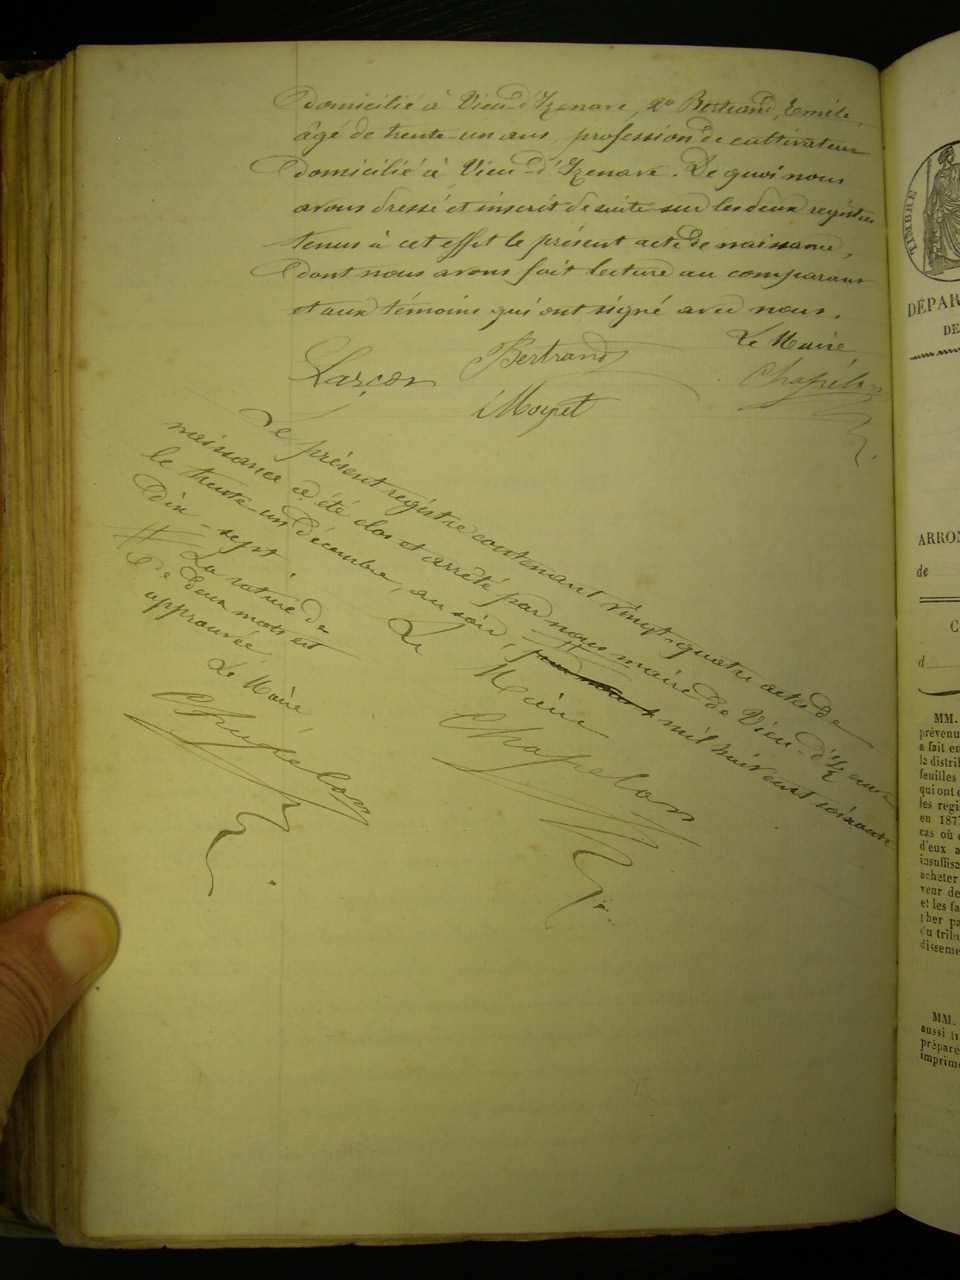 Domicilié à Vieu-d'Izenave, 2° Bertrand, Emile,
âgé de trente-un ans, profession de cultivateur
Domicilié à Vieu-d'Izenave. De quoi nous
avons dressé et inscrit de suite sur les deux registres
tenus à cet effet le présent acte de naissance,
dont nous avons fait lecture au comparant
et aux témoins qui ont signé avec nous.
Le Maire
Larçon Bertrand Chapelon
Moyret
Le présent registre contenant vingt-quatre actes de
naissance a été clos et arrêté par nous maire de Vieu-d'Izenave
le trente-un décembre, au soir, mil huit cent soixante
dix-sept
Le Maire
Chapelon
La rature de
de deux mots est
approuvée
Le Maire
Chapelon
TIMBRE
DÉPAR
DE
ARRON
de
C
d
MM.
prévenu
a fait eu
la distri
feuilles
qui ont
les regi
en 187
cas où
d'eux a
insuffisa
acheter
veur de
et les fa
cher pa
du tribu
disseme
MM.
aussi tr
préparé
imprimé